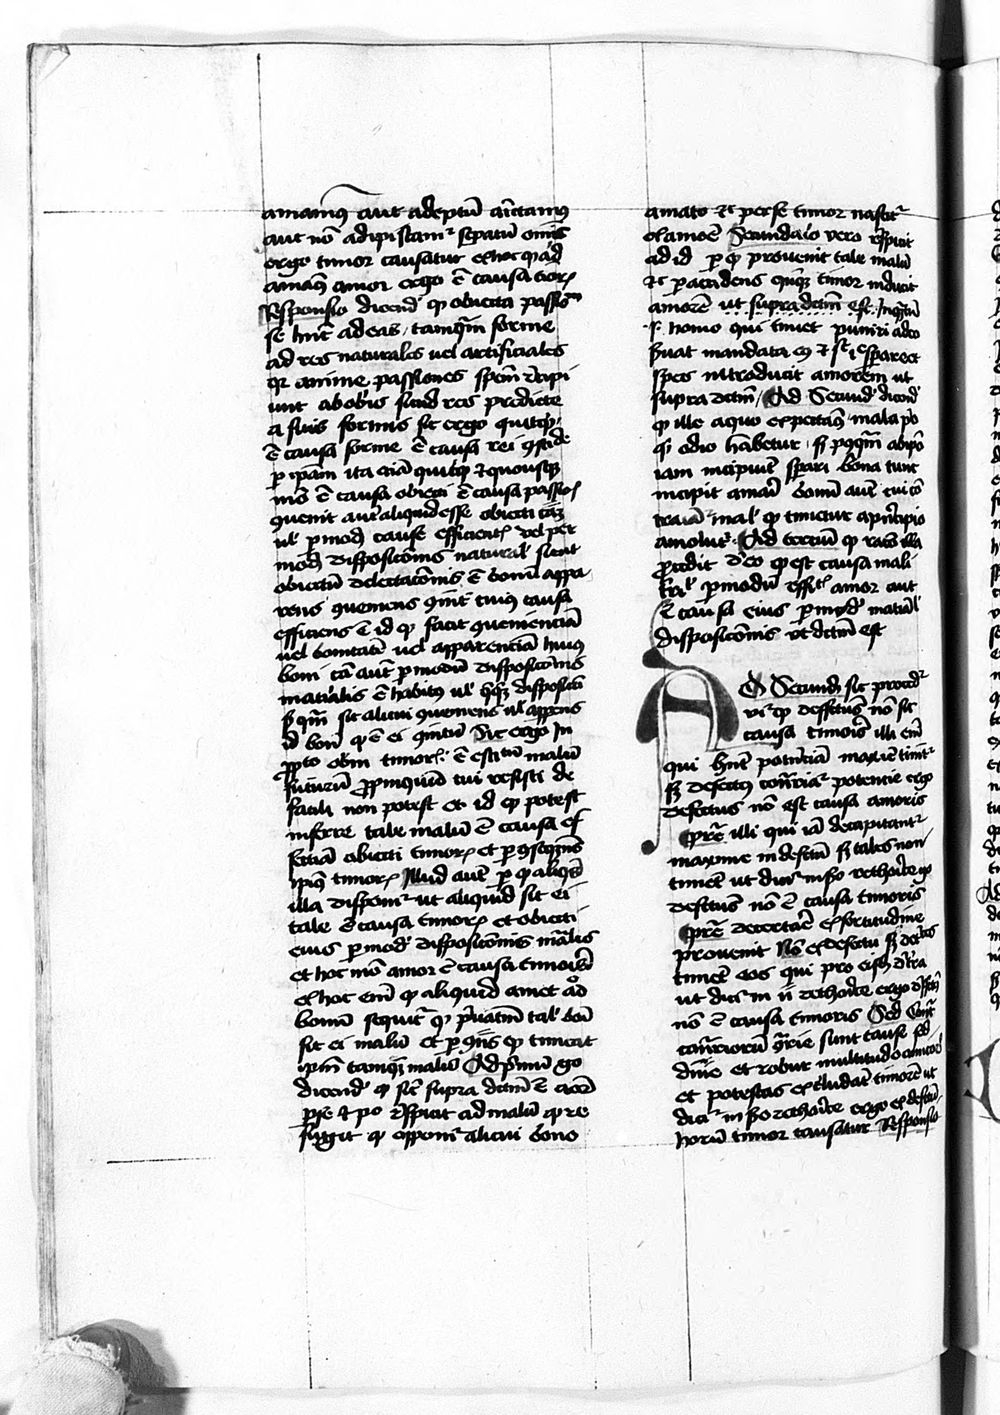 amamus aut adeptum amittamus
aut non adipiscamur speratum omnis
ergo timor causatur ex hoc quod
amamus amor ergo est causa timoris
Responsio dicendum quod obiecta passionum
se habent ad eas tamquam forme
ad res naturales uel artificiales
quia anime passiones speciem recipi
unt ab obiectis sicud res predicte
a suis formis sicut ergo quitquid
est causa forme est causa rei constitute
per ipsam ita etiam quitquid et quouis
modo est causa obiecti est causa passionis
autem aliquid esse obiecti causa
uel per modum cause efficientis vel per
modum disposicionis naturalis sicut
obiectum delectacionis est bonum appa
rens conueniens coniunctum cuius causa
efficiens est id quod facit conuenienciam
uel bonitatem uel apparenciam huius
boni causa autem per modum disposicionis
materialis est habitus uel quecumque disposicio
secundum quam fit alicui conueniens uel apparens
id bonum quod est ei coniunctum Sic ergo In
proposito obiectum timoris est estimatum malum
futurum propinquum cui resisti de
facili non potest et id quod potest
inferre tale malum est causa ef
fectiua obiecti timoris et per consequens
ipsius timoris Illud autem per quod aliquis
illa disponitur ut aliquid sit ei
tale est causa timoris et obiecti
eius per modum disposicionis materialis
et hoc modo amor est causa timoris
ex hoc enim quod aliquis amet aliquod
bonum sequitur quod priuatiuum talis boni
sit ei malum et per consequens quod timeat
ipsum tamquam malum Ad primum ergo
dicendum quod sicut supra dictum est timor
per se et primo respicit ad malum quod re
fugit quod opponitur alicui bono
amato et perse timor nascitur
ex amore Secundario vero respicit
ad id per quod prouenit tale malum
et per accidens quandoque timor inducit
amorem ut supra dictum est. Inquantum
s. homo qui timet puniri a deo
seruat mandata eius et sic incipit sperare et
spes introducit amorem ut
supra dictum Ad Secundum dicendum
quod ille a quo expectantur mala primo
quidem odio habetur sed postquam ab ipso
iam incipiunt sperari bona tunc
incipit amari bonum autem cui con
trariatur malum quod timetur a principio
amatur Ad tercium quod racio illa
procedit de eo quod est causa mali
terribilis per modum efficientis amor autem
est causa eius per modum materialis
disposicionis ut dictum est
Ad Secundum sic procedi
tur quod deffectus non sit
causa timoris illi enim
qui habent potenciam maxime timentur
sed defectus contrariatur potencie ergo
defectus non est causa amoris
Preterea illi qui iam decapitantur
maxime in defectu sed tales non
timent ut dicitur in secundo rethorice ergo
defectus non est causa timoris
Preterea decertare ex fortitudine
prouenit Non ex defectu sed decertantes
timent eos qui pro eisdem decertant
ut dicitur in ii rethorice ergo deffectus
non est causa timoris Sed contra
contrariorum contrarie sunt cause sed
diuicie et robur multitudo amicorum
et potestas excludunt timorem ut
dicitur in secundo rethorice ergo ex defectu
horum timor causatur Responsio